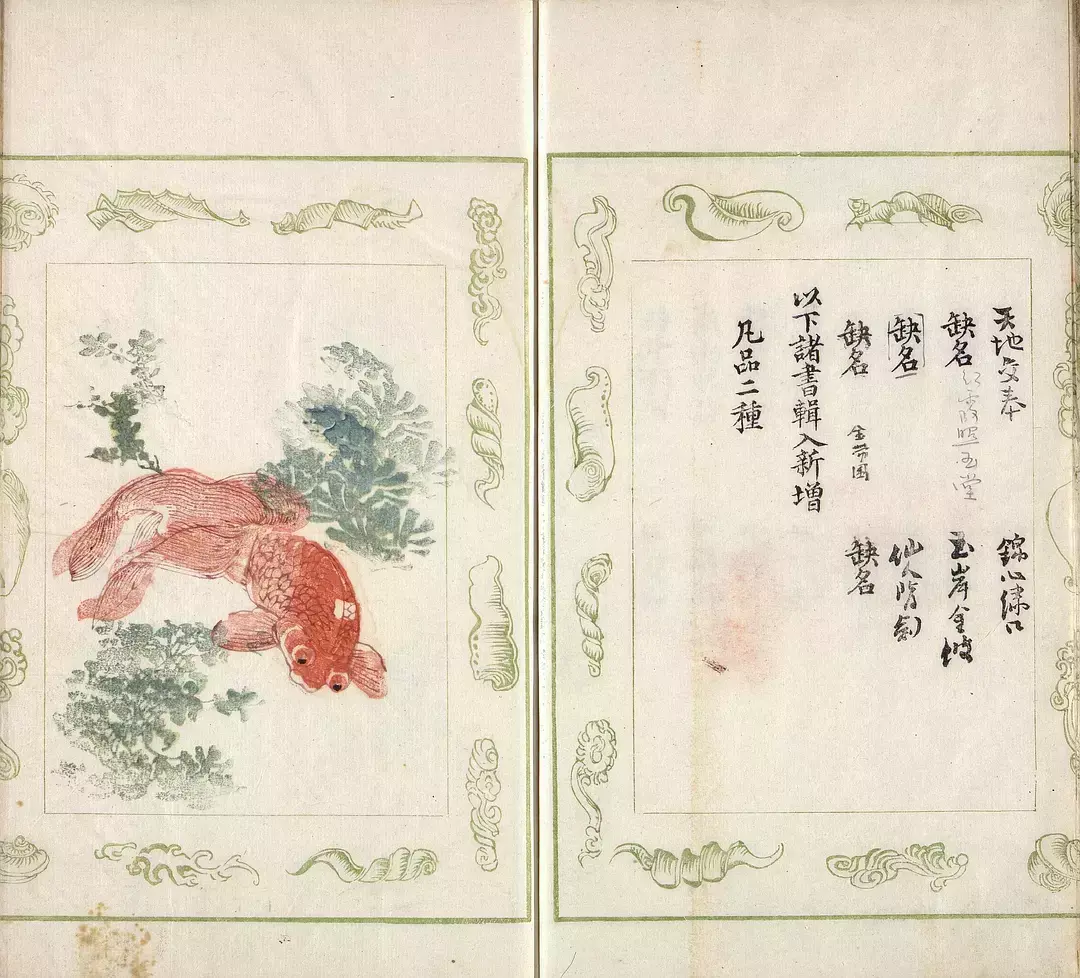 天地交奉 錦心繡口
缺名 紅霞照玉堂 玉岸金坡
缺名 仙人隋劍
缺名 金帶圍 缺名
以下諸書輯入新增
凡品二種